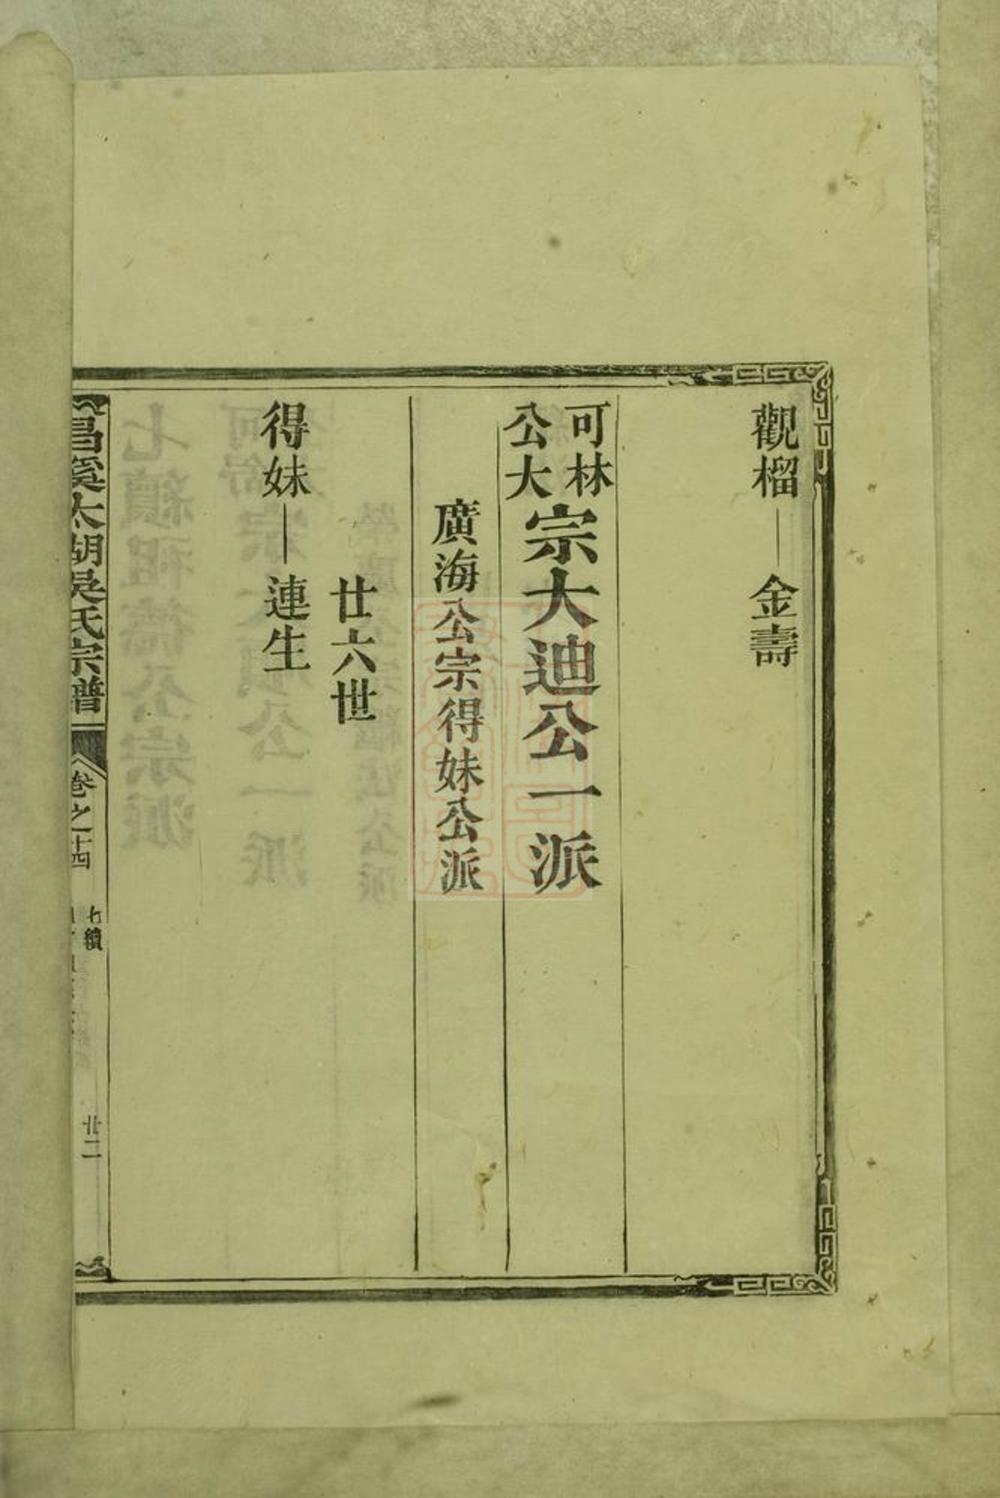 觀榴 金壽
可林
公大
宗大迪公一派
廣海公宗得妹公派
廿六世
得妹 連生
昌溪太湖吳氏宗譜 卷之十四 七續 廿二